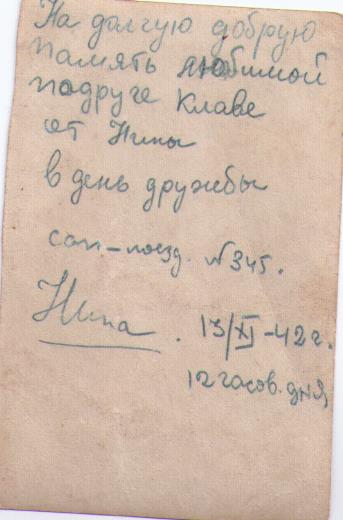 На долгую добрую
память любимой
подруге Клаве
от Нины
в день дружбы
сан-поезд. №345.
Нина. 13/XI-42 г.
12 часов. дня